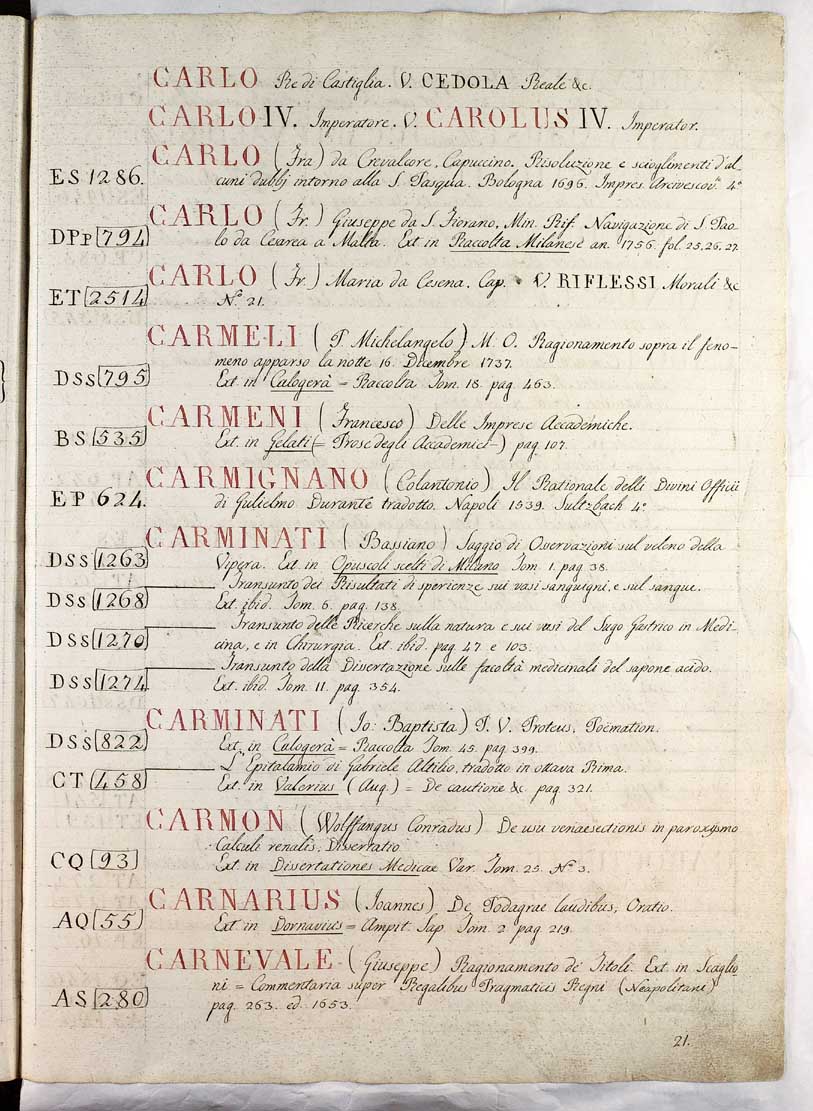 CARLO Re di Castiglia. V. CEDOLA Reale &c.
CARLO IV. Imperatore. V. CAROLUS IV. Imperator.
CARLO (Fra) da Crevalcore, Capuccino. Risoluzione e scioglimenti d'al-
ES 1286. cuni dubbj intorno alla S. Pasqua. Bologna 1696. Impres. Arcivescov. 4.°
CARLO (Fr.) Giuseppe da S. Fiorano, Min. Rif. Navigazione di S. Pao-
DPp 794 lo da Cesarea a Malta. Ext in Raccolta Milanese an. 1756. fol. 25, 26, 27.
CARLO (Fr.) Maria da Cesena. Cap. V. RIFLESSI Morali &c
ET 2514 N.° 21.
CARMELI (P. Michelangelo) M. O. Ragionamento sopra il feno-
meno apparso la notte 16. Dicembre 1737.
DSs 795 Ext in Calogerà = Raccolta Tom. 18. pag. 463.
CARMENI (Francesco) Delle Imprese Accademiche.
BS 535 Ext. in Gelati (= Prose degli Accademici-) pag. 107.
CARMIGNANO (Colantonio) Il Rationale delli Divini Officii
EP 624. di Gulielmo Durante tradotto. Napoli 1539. Sultzbach 4.°
CARMINATI (Bassiano) Saggio di Osservazioni sul veleno della
DSS 1263 Vipera. Ext. in Opuscoli scelti di Milano Tom. 1. pag. 38.
Transunto dei Risultati di sperienze sui vasi sanguigni, e sul sangue.
DSs 1268 Ext. ibid. Tom. 6. pag. 138.
Transunto delle Ricerche sulla natura e sui vasi del Sugo Gastrico in Medi-
DSs 1270 cina, e in Chirurgia. Ext. ibid. pag. 47. e 103.
Transunto della Dissertazione sulle facoltà medicinali del sapone acido.
DSs 1274 Ext. ibid. Tom. 11. pag. 354.
CARMINATI (Jo: Baptista) P. V. Proteus, Poëmation.
DSs 822 Ext. in Calogerà = Raccolta Tom. 45. pag. 399.
L'Epitalamio di Gabriele Altilio, tradotto in ottava Rima.
CT 458 Ext. in Valerius (Aug.) = De cautione &c. pag. 321.
CARMON (Wolffangus Conradus) De usu venaesectionis in paroxysmo
Calculi renalis, Dissertatio
CQ 93 Ext in Dissertationes Medicae Var. Tom. 25. N.° 3.
CARNARIUS (Joannes) De Podagrae laudibus, Oratio.
AQ 55 Ext in Dornavius = Ampit. Sap. Tom. 2. pag. 219.
CARNEVALE (Giuseppe) Ragionamento de' Titoli. Ext. in Scaglio
ni = Commentaria super Regalibus Pragmaticis Regni (Neapolitani)
AS 280 pag. 263. ed. 1653.
21.